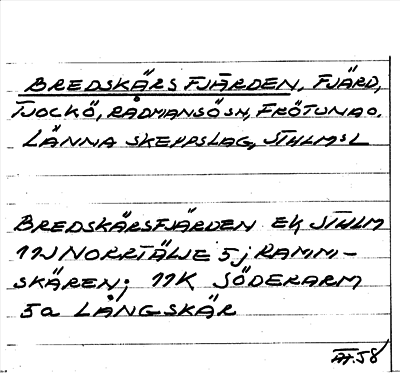 BREDSKÄRSFJÄRDEN, FJÄRD,
TJOCKÖ, RÅDMANSÖ SN, FRÖTUNA O.
LÄNNA SKEPPSLAG, STHLM:S L
BREDSKÄRSFJÄRDEN EK STHLM
11J NORRTÄLJE 5j RAMM-
SKÄREN; 11K SÖDERARM
5a LÅNGSKÄR
58